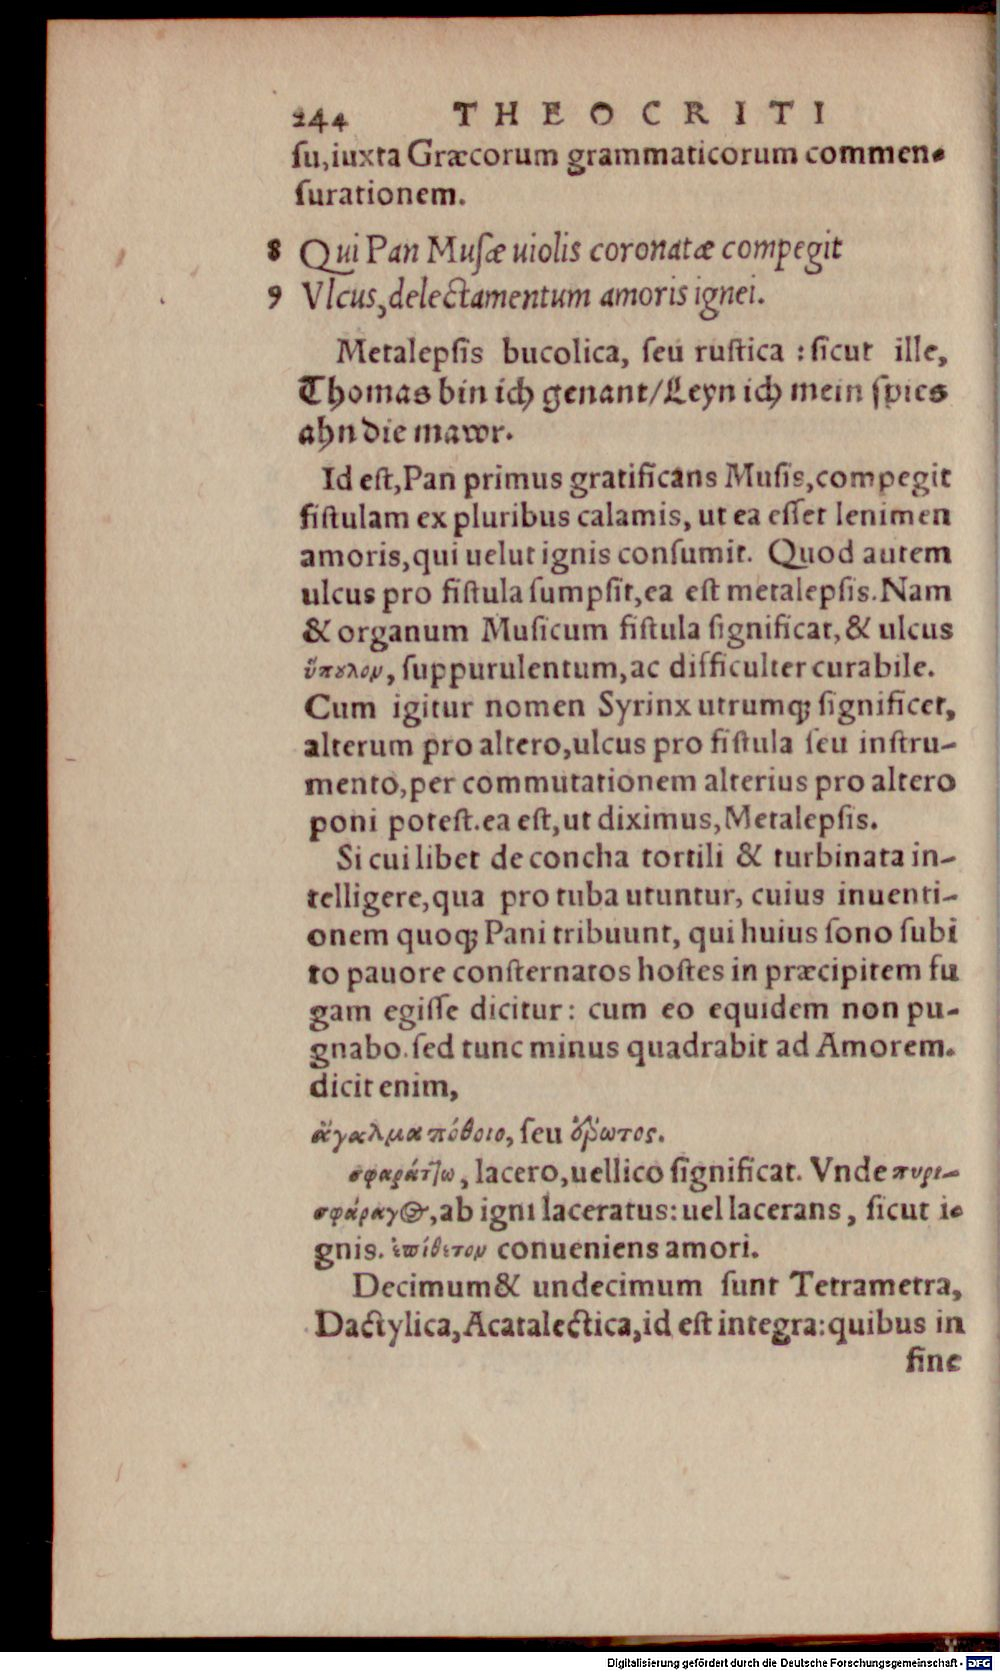 244 THEOCRITI
ſu, iuxta Græcorum grammaticorum commen-
ſurationem.
8 Qui Pan Muſæ uiolis coronatæ compegit
9 Vlcus, delectamentum amoris ignei.
Metalepſis bucolica, ſeu ruſtica : ſicut ille,
Thomas bin ich genant/Leyn ich mein ſpies
ahn die mawr.
Id eſt, Pan primus gratificans Muſis, compegit
fiſtulam ex pluribus calamis, ut ea eſſet lenimen
amoris, qui uelut ignis conſumit. Quod autem
ulcus pro fiſtula ſumpſit, ea eſt metalepſis. Nam
& organum Muſicum fiſtula ſignificat, & ulcus
ὕπουλον, ſuppurulentum, ac difficulter curabile.
Cum igitur nomen Syrinx utrumq; ſignificet,
alterum pro altero, ulcus pro fiſtula ſeu inſtru-
mento, per commutationem alterius pro altero
poni poteſt. ea eſt, ut diximus, Metalepſis.
Si cui libet de concha tortili & turbinata in-
telligere, qua pro tuba utuntur, cuius inuenti-
onem quoq; Pani tribuunt, qui huius ſono ſubi
to pauore conſternatos hoſtes in præcipitem fu
gam egiſſe dicitur: cum eo equidem non pu-
gnabo. ſed tunc minus quadrabit ad Amorem.
dicit enim,
ἄγαλμα πόθοιο, ſeu ἔρωτος.
σφαράττω, lacero, uellico ſignificat. Vnde πυρι-
σφάραγος, ab igni laceratus: uel lacerans, ſicut i-
gnis. ἐπίθετον conueniens amori.
Decimum & undecimum ſunt Tetrametra,
Dactylica, Acatalectica, id eſt integra: quibus in
fine
Digitalisierung gefördert durch die Deutsche Forschungsgemeinschaft - DFG